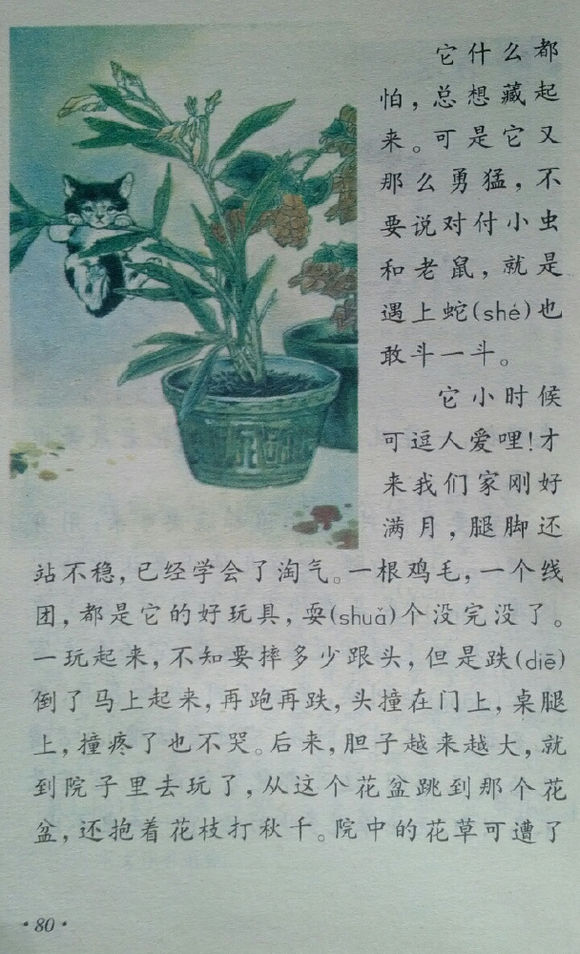 它什么都
怕，总想藏起
来。可是它又
那么勇猛，不
要说对付小虫
和老鼠，就是
遇上蛇(shé)也
敢斗一斗。
它小时候
可逗人爱哩！才
来我们家刚好
满月，腿脚还
站不稳，已经学会了淘气。一根鸡毛，一个线
团，都是它的好玩具，耍(shuǎ)个没完没了。
一玩起来，不知要摔多少跟头，但是跌(diē)
倒了马上起来，再跑再跌，头撞在门上，桌腿
上，撞疼了也不哭。后来，胆子越来越大，就
到院子里去玩了，从这个花盆跳到那个花
盆，还抱着花枝打秋千。院中的花草可遭了
·80·